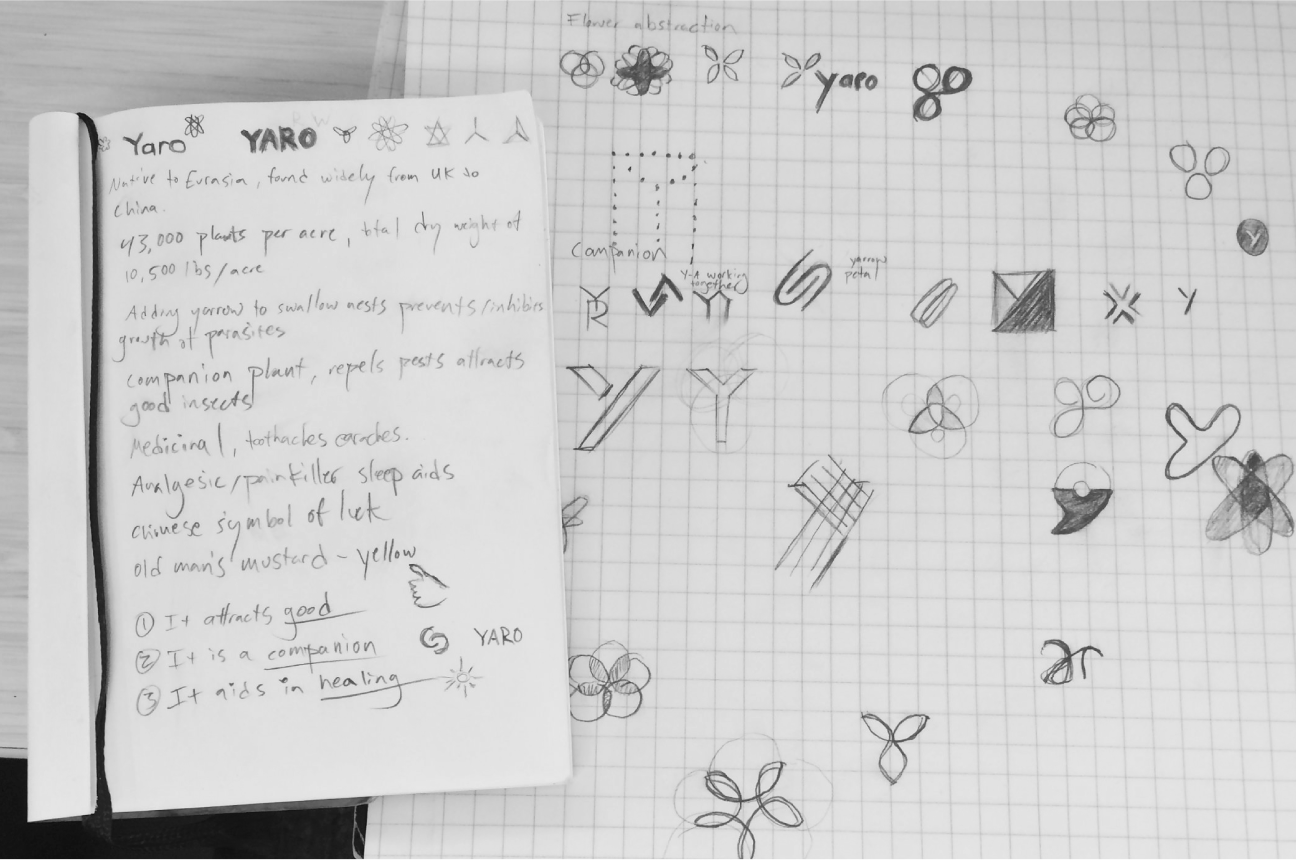 Yaro YARO
Native to Eurasia, found widely from UK to
China.
43,000 plants per acre, total dry weight of
10,500 lbs/acre
Adding yarrow to swallow nests prevents/inhibits
growth of parasites
companion plant, repels pests attracts
good insects
Medicinal, toothaches earaches.
Analgesic/painkiller sleep aids
chinese symbol of luck
old man's mustard - yellow
① It attracts good
② It is a companion
YARO
③ It aids in healing
Flower abstraction
yaro
Y
Companion
Y-A working
together
yarrow
petal
Y
ar